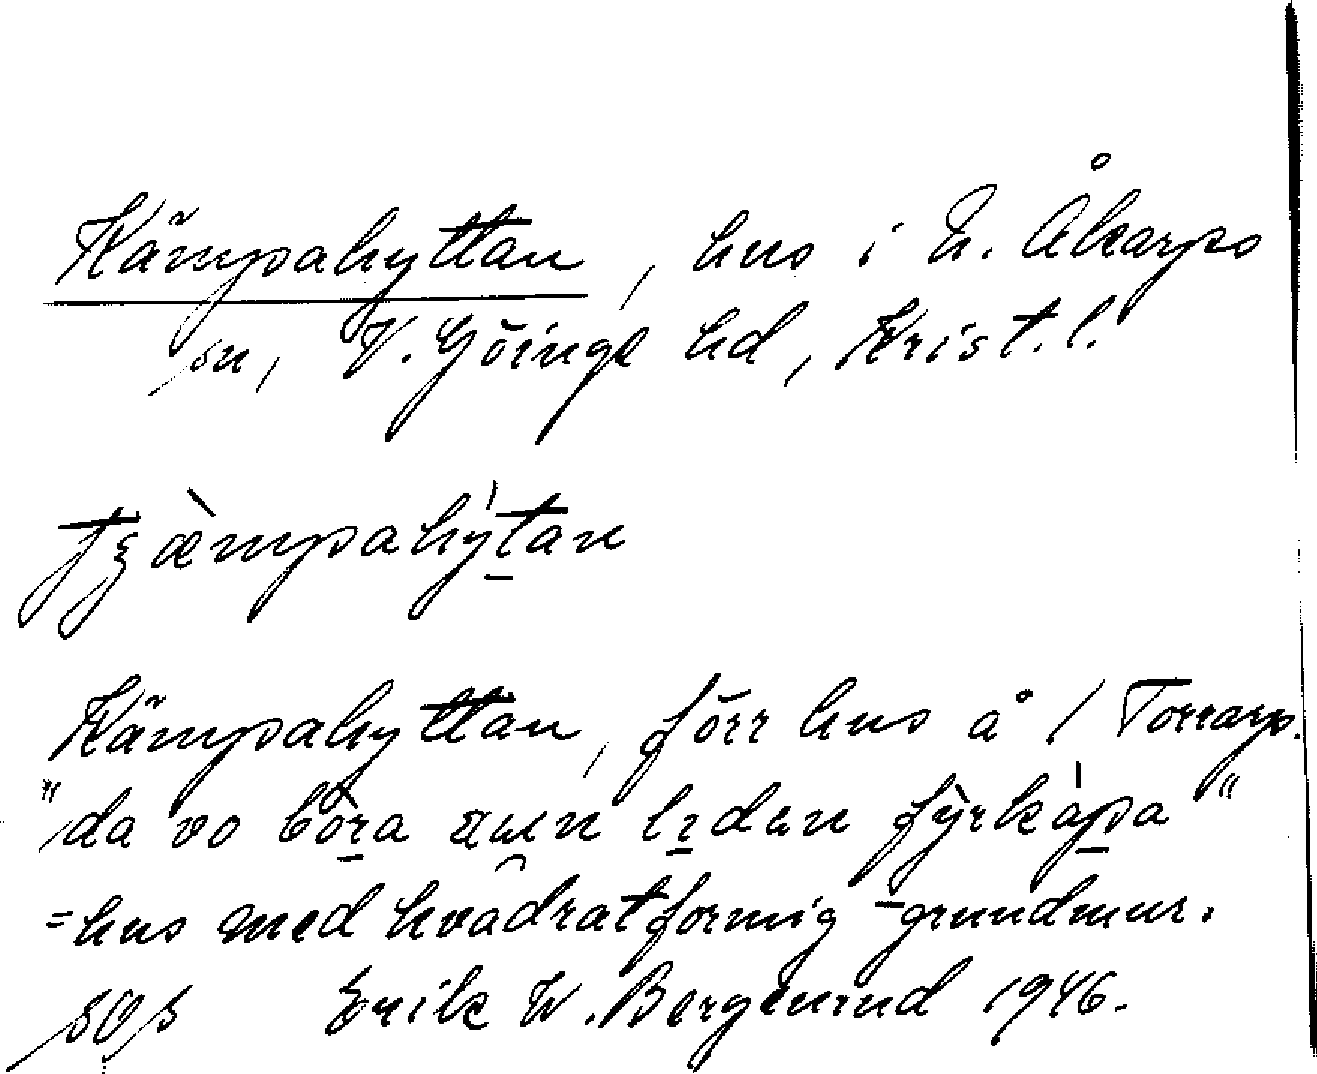 Kämpahyttan, hus i N. Åkarps
sn, V. Göinge hd, Krist. l.
tʒæ̀mpahýtan
Kämpahyttan, förr hus å 1 Torrarp.
"da vo bora en liden fỳrkápa"
=hus med kvadratformig grundmur.
Erik W. Bergstrand 1946.